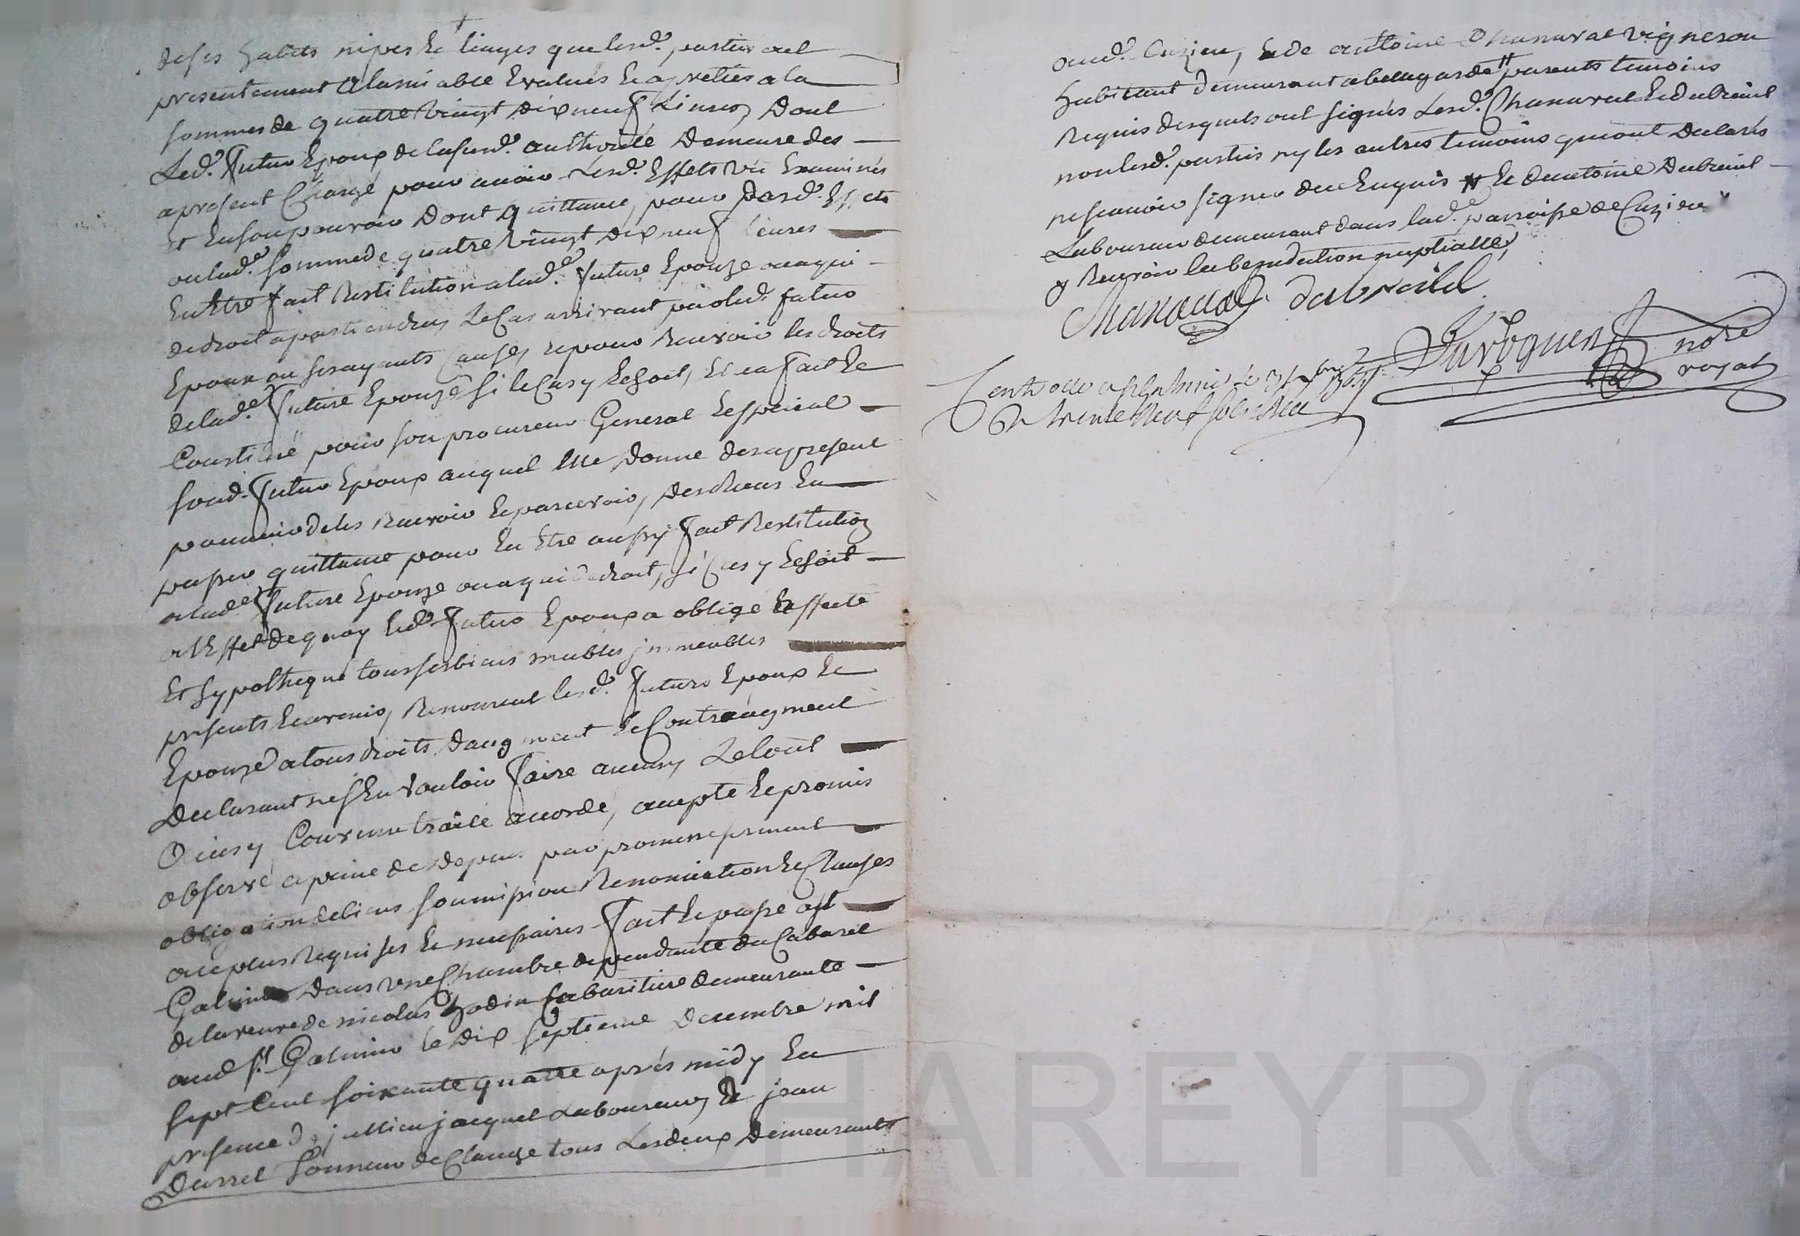 de ses habits nipes & linges que lesd. parties ont
presentement a lamiable Evalués & apretiés a la
somme de quatre vingt dix neuf Livres, Dont
Led. futur Epoux de lasusd. authorité Demeure des
apresent Chargé pour avoir Lesd. Effets vu Examinés
Et En son pouvoir Dont quittance, pour Desd. Effets
ou lad. Somme de quatre vingt dix neuf livres
En Etre fait Restitution alad. future Epouze ou a qui
de droit apartiendra Le Cas arrivant par led. futur
Epoux ou ses ayants Causes, & pour Recevoir les droits
de lad. future Epouze si le Cas y Echoit, Elle a fait &
Constitué pour son procureur General & special
sond. futur Epoux auquel Elle Donne des apresent
pouvoir de les Recevoir & parcevoir, des Recus En
passer quittance pour En Etre aussy fait Restitution
alad. future Epouze ou a qui de droit, si Cas y Echoit
a l'Effet de quoy led. futur Epoux a obligé affecté
Et hypotheque tous ses biens meubles immeubles
presents & avenir, Renonceant lesd. futurs Epoux &
Epouze a tous droits d'augment & Contraugment
Declarant n'en Vouloir faire aucuns Le tout
Ainsy Convenu traité accordé, accepté & promis
observé a peine de Depens par promesse serment
obligation de biens soumission Renonciation & Clauses
au plus Requises & necessaires fait & passé a St
Galmier Dans une Chambre dependante du Cabaret
de la veuve de nicolas Cabaretiere demeurante
aud St. Galmier le Dix septieme Decembre mil
sept Cent soixante quatre après midy En
presence de jullien jacquet Laboureur, & jean
Durret sonneur de Cloche tous Lesdeux Demeurants
aud. Cuzieu, & de antoine Chanavat Vigneron
habitant Demeurant a bellegarde parents temoins
Requis desquels ont signés Lesd. Chanavat & Dubreüil
non lesd. parties ny les autres temoins qui ont declarés
ne scavoir signer de ce Enquis & de antoine Dubreüil
Laboureur demeurant dans lad. parroisse de Cuzieu
y Recevoir la benediction nuptialle
Chanavat Dubreüil
nore
royal
Controllé a St galmier le 31 xbre 1764